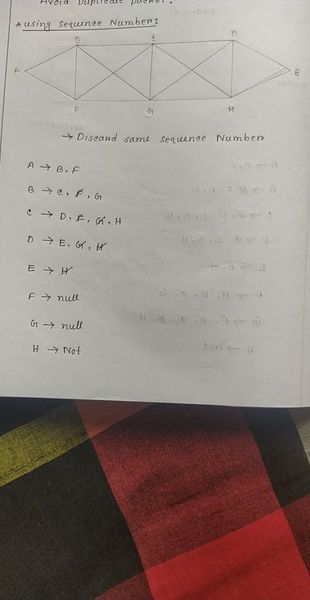 Avoid Duplicate packet.
* using Sequence Number:
B C D
A E
F G H
→ Discard same sequence Number
A → B, F
B → C, F, G
C → D, F, G, H
D → E, G, H
E → H
F → null
G → null
H → Not